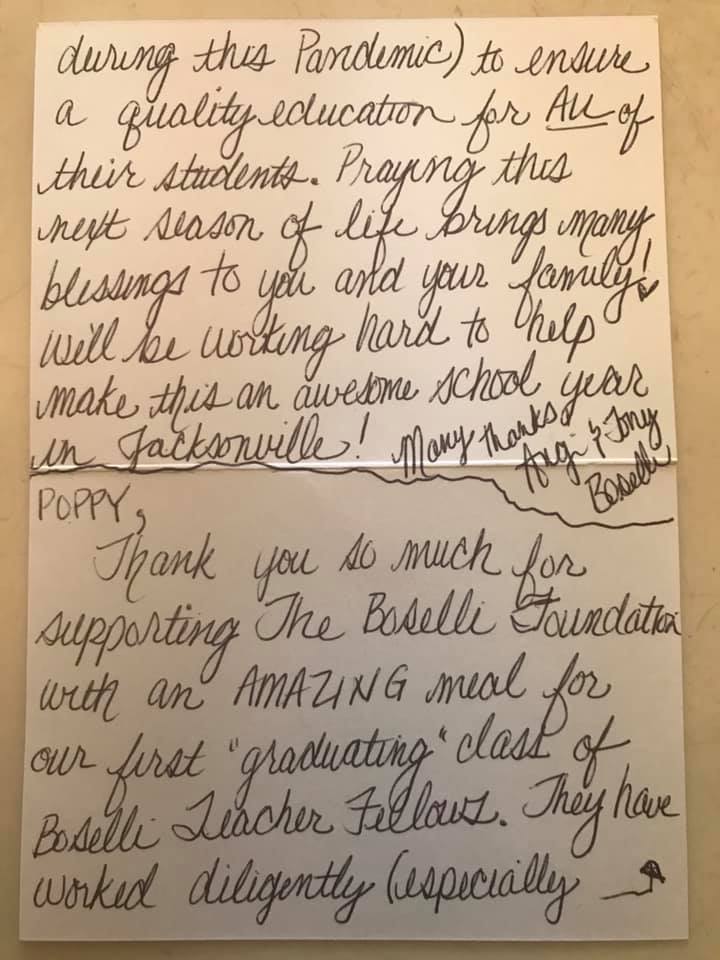 POPPY,
Thank you so much for
supporting The Boselli Foundation
with an AMAZING meal for
our first "graduating" class of
Boselli Teacher Fellows. They have
worked diligently (especially
during this Pandemic) to ensure
a quality education for ALL of
their students. Praying this
next season of life brings many
blessings to you and your family!
Will be working hard to help
make this an awesome school year
in Jacksonville!
Many thanks,
Angi & Tony
Boselli